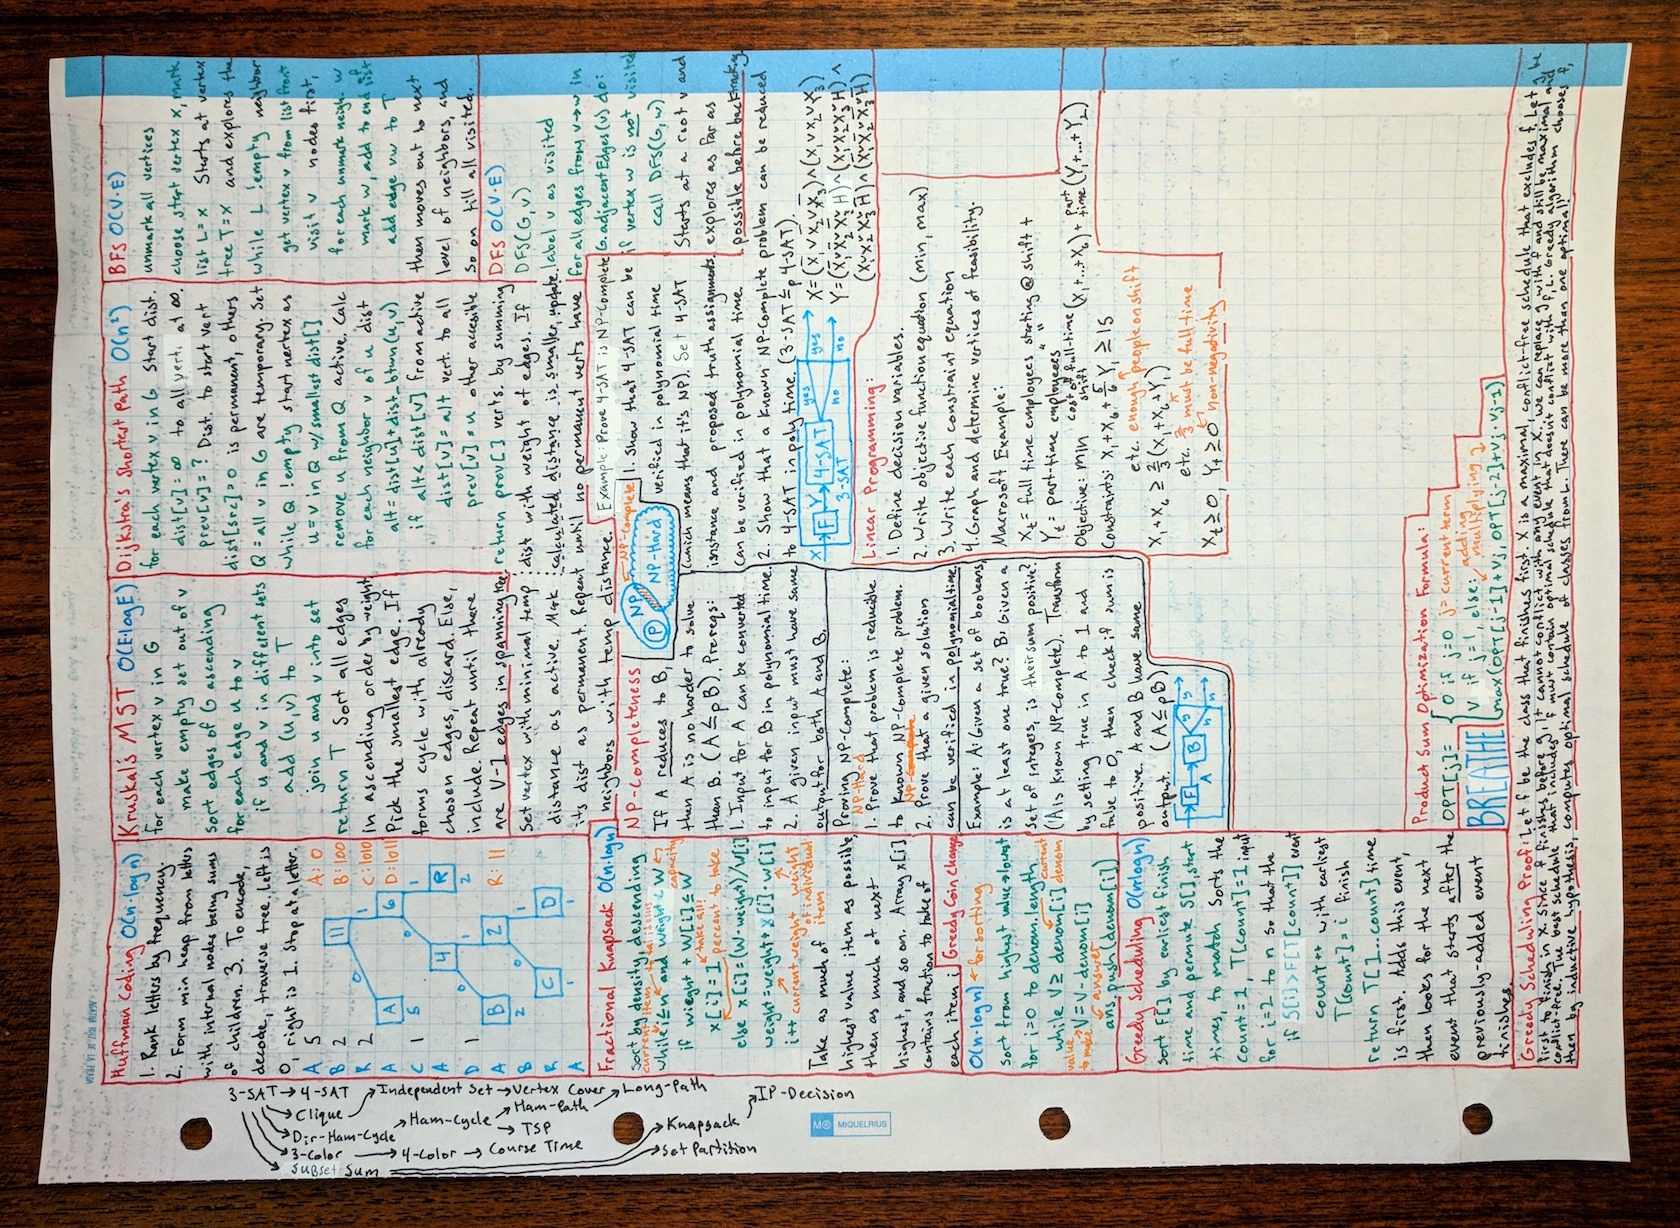 Huffman Coding O(n·logn)
1. Rank letters by frequency.
2. Form min heap from letters
with internal nodes being sums
of children. 3. To encode,
decode, traverse tree. Left is
0, right is 1. Stop at a letter.
A 5
B 2
R 2
A
C 1
A
D 1
A
B
R
A
A: 0
B: 100
C: 1010
D: 1011
R: 11
11
0
1
A
5
6
0
1
4
R
2
0
1
B
2
2
0
1
C
D
Fractional Knapsack O(n·logn)
Sort by density, descending
while i≤n and weight < W
if wieght + W[i] ≤ W
x[i] = 1
take all!
percent to take
else x[i] = (W-weight)/W[i]
weight = weight + x[i]·w[i]
i++
current weight
weight of individual item
Take as much of
highest value item as possible,
then as much of next
highest, and so on. Array x[i]
contains fraction to take of
each item.
Greedy Coin change
O(n·logn) ← for sorting
sort from highest value to lowest
for i=0 to denom.length
while V ≥ denom[i]
current denom
V = V - denom[i]
value to make
answer
ans.push(denom[i])
Greedy Scheduling O(nlogn)
sort F[] by earliest finish
time and permute S[], start
times, to match
Sorts the
count = 1, T[count] = 1
input
for i=2 to n
so that the
if S[i] > F[T[count]]
event
count++
with earliest
T[count] = i
finish
return T[1...count]
time
is first. Adds this event,
then looks for the next
event that starts after the
previously-added event
finishes.
Kruskal's MST O(ElogE)
for each vertex v in G
make empty set out of v
sort edges of G ascending
for each edge u to v
if u and v in different sets
add (u,v) to T
join u and v into set
return T
Sort all edges
in ascending order by weight
Pick the smallest edge. If
forms cycle with already
chosen edges, discard. Else,
include. Repeat until there
are V-1 edges in spanning tree
Dijkstra's Shortest Path O(n²)
for each vertex v in G
Start dist.
dist[v] = ∞
to all verts at ∞.
prev[v] = ?
Dist. to start vert
dist[src] = 0
is permanent, others
Q = all v in G
are temporary. Set
while Q !empty
start vertex as
u = v in Q w/ smallest dist[]
remove u from Q
active. Calc
for each neighbor v of u
dist
alt = dist[u] + dist_btwn(u,v)
if alt < dist[v]
from active
dist[v] = alt
vert to all
prev[v] = u
other accesible
return prev[]
verts. by summing
Set vertex with minimal temp
dist with weight of edges. If
distance as active. Mark
calculated distance is smaller, update.
it's dist as permanent. Repeat until no permanent verts have
neighbors with temp distance.
BFS O(V·E)
unmark all vertices
choose start vertex x, mark
list L = x
Starts at vertex
tree T = x
and explores the
while L !empty
neighbor
get vertex v from list front
visit v
nodes first,
for each unmark neigh. w
mark w, add to end list
add edge vw to T
then moves out to next
level of neighbors, and
so on till all visited.
DFS O(V·E)
DFS(G,v)
label v as visited
for all edges from v→w in
G.adjacentEdges(v) do:
if vertex w is not visited
call DFS(G,w)
Starts at a root v and
explores as far as
possible before backtracking
NP-Completeness
NP
P
NP-Complete
NP-Hard
If A reduces to B,
then A is no harder to solve
than B. (A ≤ p B). Prereqs:
1. Input for A can be converted
to input for B in polynomial time.
2. A given input must have same
output for both A and B.
Proving NP-Complete:
NP-Hard
1. Prove that problem is reducible
to known NP-Complete problem.
2. Prove that a given solution
can be verified in polynomial time.
Example: A: Given a set of booleans,
is at least one true? B: Given a
set of integers, is their sum positive?
(A is known NP-Complete). Transform
by setting true in A to 1 and
false to 0, then check if sum is
positive. A and B have same
output. (A ≤ p B)
F
B
A
y
n
y
n
Example: Prove 4-SAT is NP-Complete
1. Show that 4-SAT can be
verified in polynomial time
(which means that it's NP). Set 4-SAT
instance and proposed truth assignments.
Can be verified in polynomial time.
2. Show that a known NP-Complete problem can be reduced
to 4-SAT in poly time. (3-SAT ≤ p 4-SAT).
X
F
Y
4-SAT
3-SAT
yes
no
yes
no
Linear Programming:
1. Define decision variables.
2. Write objective function equation (min, max)
3. Write each constraint equation
4. Graph and determine vertices of feasibility.
Macrosoft Example:
Xt = full time employees starting @ shift t
Yt = part-time employees "
Objective: min cost of full-time shift (X1+...+X6) + part time (Y1+...+Y2)
Constraints: X1 + X6 + 5/6 Y1 ≥ 15
etc. enough people on shift
X1 + X6 ≥ 2/3 (X1 + X6 + Y1)
etc. 2/3 must be full-time
Xt ≥ 0, Yt ≥ 0
non-negativity
Product Sum Optimization Formula:
OPT[j] = { 0 if j=0
j = current term
V1 if j=1, else:
adding
multiplying
max(OPT[j-1]+vj, OPT[j-2]+vj·vj-1)
BREATHE
Greedy Scheduling Proof: Let f be the class that finishes first. X is a maximal, conflict-free schedule that excludes f. Let g be
first to finish in X. Since f finishes before g, it cannot conflict with any event in X, we can replace g with f and still be maximal and
conflict-free. The best schedule that includes f must contain optimal schedule that doesn't conflict with f, L. Greedy algorithm chooses f,
then by inductive hypothesis, computes optimal schedule of classes from L. There can be more than one optimal!
3-SAT → 4-SAT
Clique → Independent Set → Vertex Cover → Long-Path
Dir-Ham-Cycle → Ham-Cycle → Ham-Path
TSP
3-Color → 4-Color → Course Time
Subset-Sum
Knapsack → IP-Decision
Set Partition
MIQUELRIUS